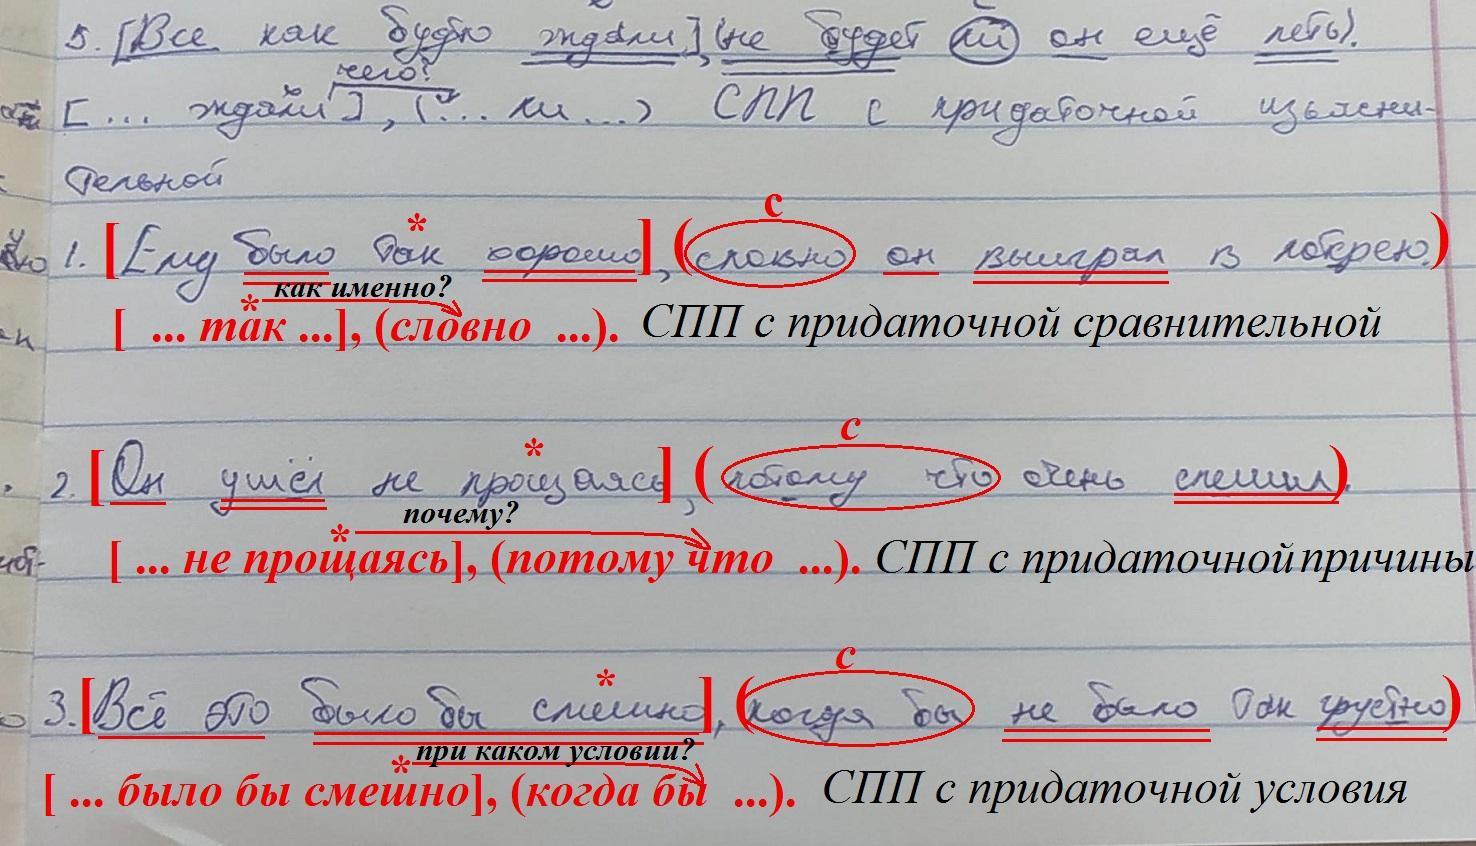 5. [Все как будто ждали], (не будет ли он ещё петь).
чего?
[... ждали], (... ли ...) СПП с придаточной изъясни-
тельной
с
*
1. [Ему было так хорошо], (словно он выиграл в лотерею.)
как именно?
*
[ ... так ...], (словно ...). СПП с придаточной сравнительной
с
*
2. [Он ушёл не прощаясь], (потому что очень спешил).
почему?
*
[ ... не прощаясь], (потому что ...). СПП с придаточной причины
с
*
3. [Всё это было бы смешно], (когда бы не было так грустно)
при каком условии?
*
[ ... было бы смешно], (когда бы ...). СПП с придаточной условия